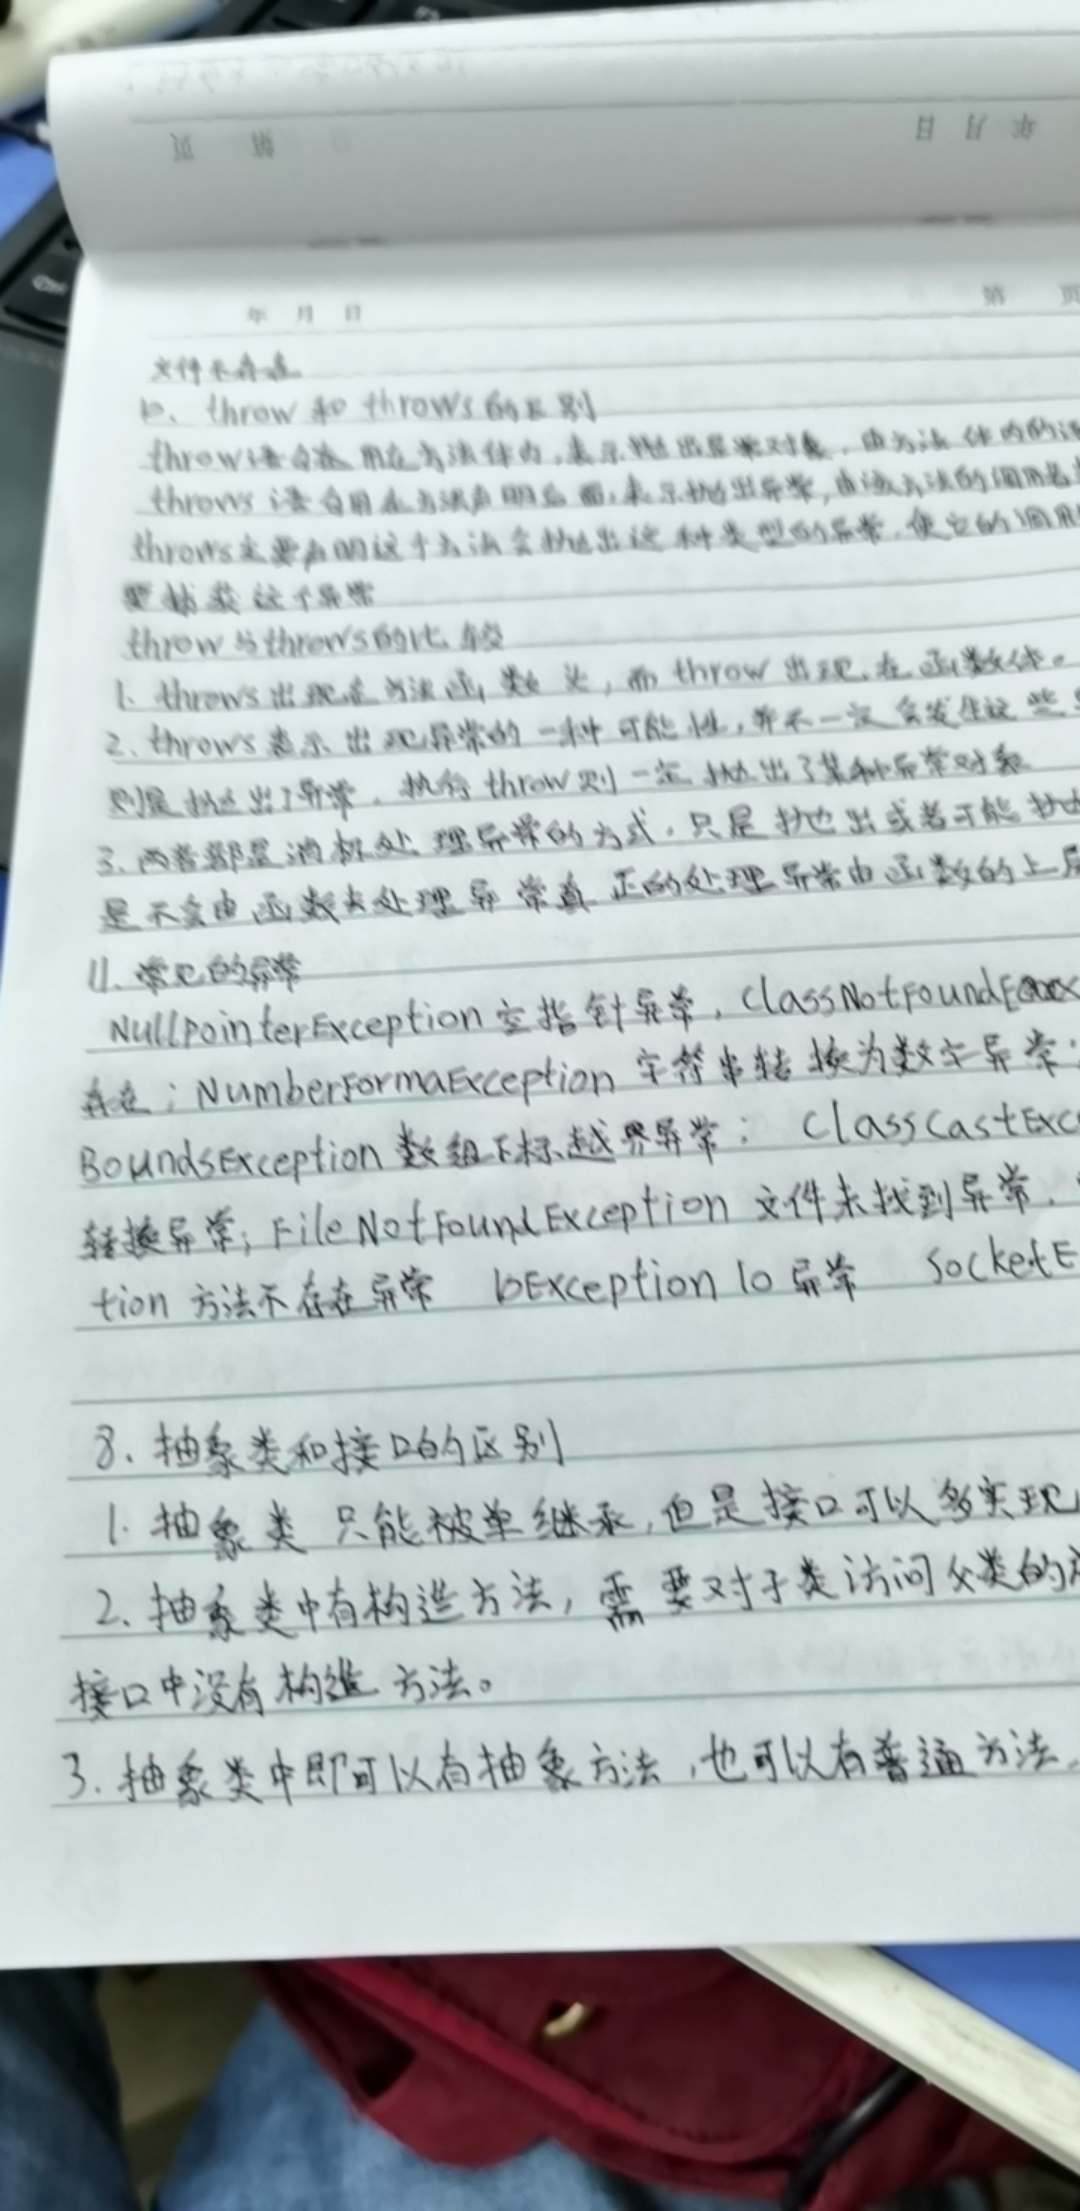 年 月 日
第 页
年 月 日 第 页
文件不存在
10、throw 和 throws的区别
throw语句 用在方法体内,表示抛出异常对象,由方法体内的
throws 语句用在方法声明后面,表示抛出异常,由该方法的调用者
throws主要声明这个方法会抛出这种类型的异常,使它的调用
要捕获这个异常
throw与throws的比较
1. throws出现在方法函数头,而throw出现在函数体。
2. throws表示出现异常的一种可能性,并不一定会发生这些
则是抛出了异常,执行throw则一定抛出了某种异常对象
3.两者都是消极处理异常的方式,只是抛出或者可能抛
是不会由函数去处理异常真正的处理异常由函数的上
11、常见的异常
NullpointerException空指针异常,ClassNotFound
存在;NumberFormaException字符串转换为数字异常;
BoundsException数组下标越界异常; ClassCastExc
转换异常;FileNotFoundException文件未找到异常,
tion方法不存在异常 IoException Io异常 SocketE
8.抽象类和接口的区别
1.抽象类只能被单继承,但是接口可以多实现
2.抽象类中有构造方法,需要对子类访问父类的
接口中没有构造方法。
3.抽象类中即可以有抽象方法,也可以有普通方法,